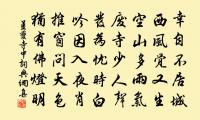 幸自不居城
西風覺又生
空山多雨雪
廢寺少人聲
為時白
吟因入夜
推窗問天色
猶有佛燈明
靈寺中詞典網集